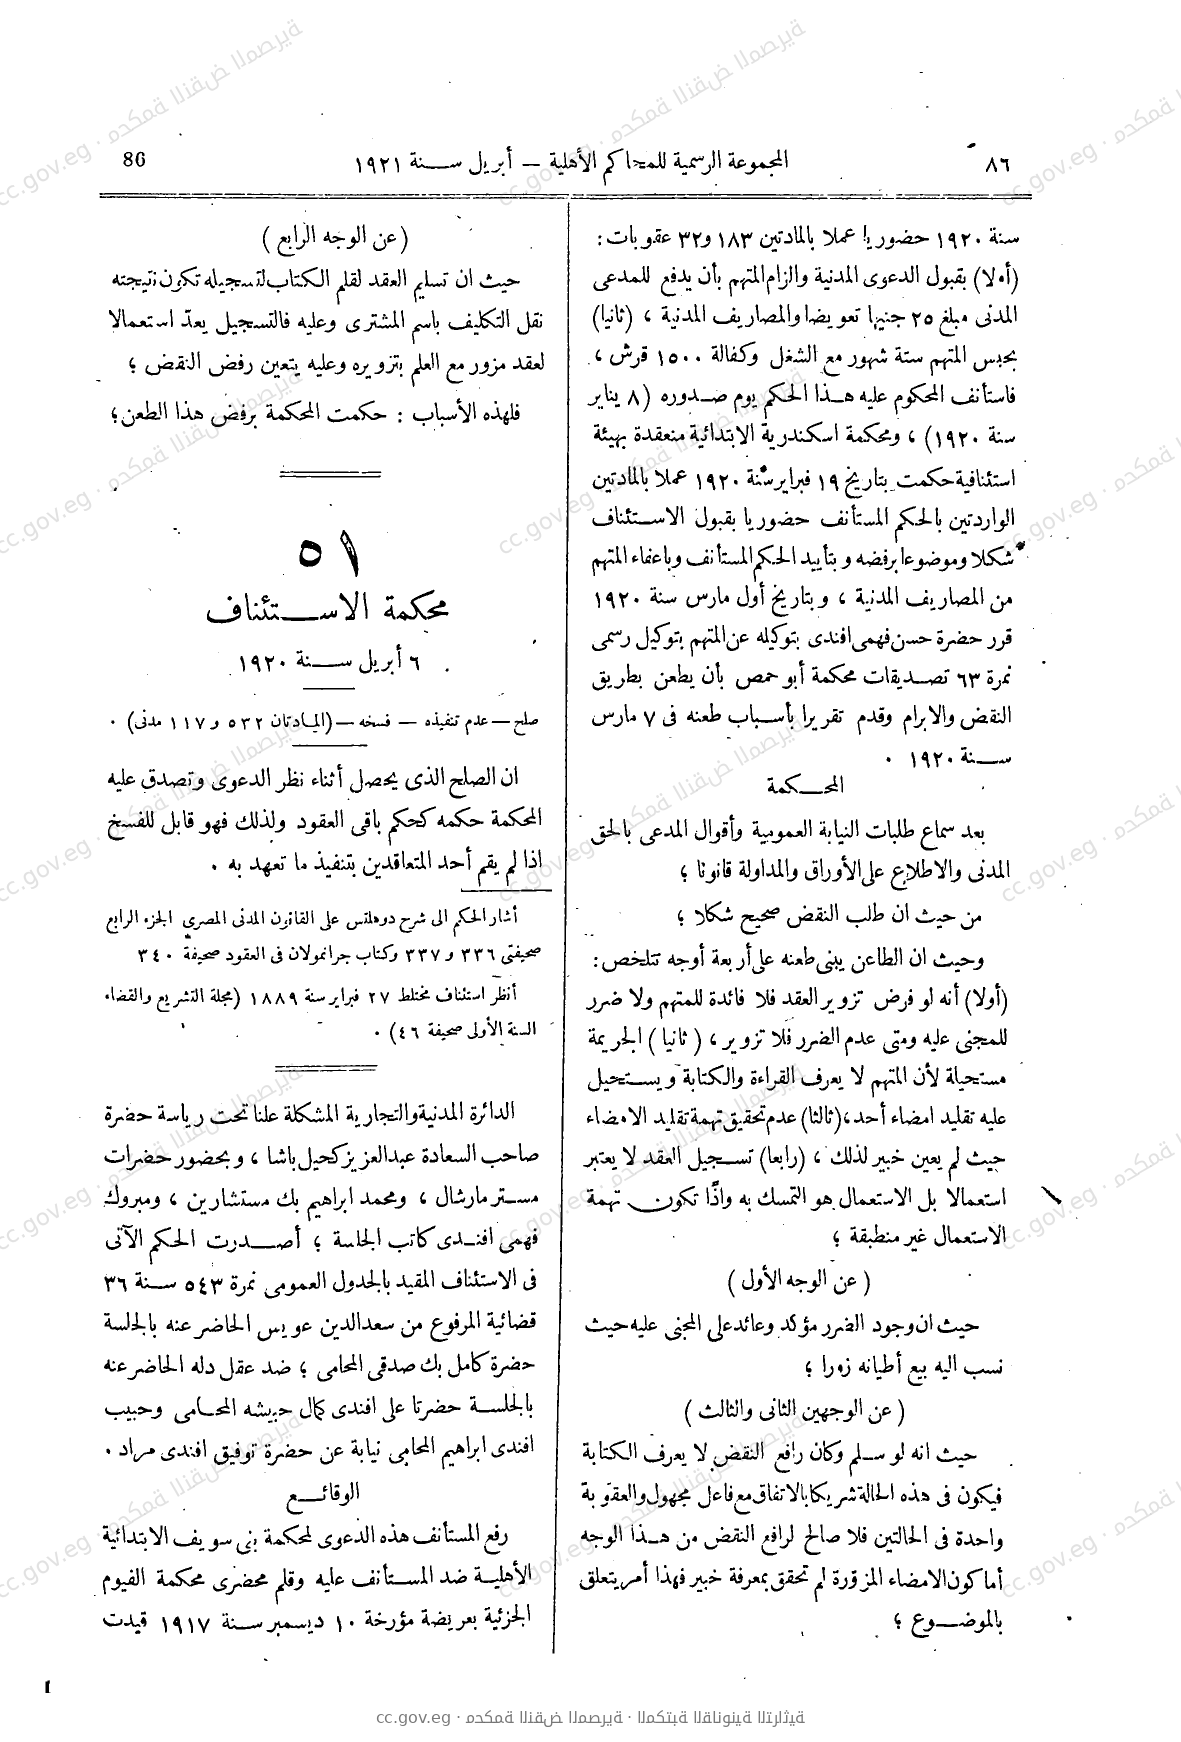 ٨٦
المجموعة الرسمية للمحاكم الأهلية — أبريل سنة ١٩٢١
86
سنة ١٩٢٠ حضوريا عملا بالمادتين ١٨٣ و٣٢ عقوبات :
(أولا) بقبول الدعوى المدنية والزام المتهم بأن يدفع للمدعى
المدنى مبلغ ٢٥ جنيها تعويضا والمصاريف المدنية ، (ثانيا)
بحبس المتهم ستة شهور مع الشغل وكفالة ١٥٠٠ قرش ،
فاستأنف المحكوم عليه هذا الحكم يوم صدوره (٨ يناير
سنة ١٩٢٠) ، ومحكمة اسكندرية الابتدائية منعقدة بهيئة
استئنافية حكمت بتاريخ ١٩ فبراير سنة ١٩٢٠ عملا بالمادتين
الواردتين بالحكم المستأنف حضوريا بقبول الاستئناف
شكلا وموضوعا برفضه وبتأييد الحكم المستأنف وباعفاء المتهم
من المصاريف المدنية ، وبتاريخ أول مارس سنة ١٩٢٠
قرر حضرة حسن فهمى افندى بتوكيله عن المتهم بتوكيل رسمى
نمرة ٦٣ تصديقات محكمة أبو حمص بأن يطعن بطريق
النقض والابرام وقدم تقريرا بأسباب طعنه فى ٧ مارس
سنة ١٩٢٠ .
المحكمة
بعد سماع طلبات النيابة العمومية وأقوال المدعى بالحق
المدنى والاطلاع على الأوراق والمداولة قانونا ؛
من حيث ان طلب النقض صحيح شكلا ؛
وحيث ان الطاعن يبنى طعنه على أربعة أوجه تتلخص :
(أولا) أنه لو فرض تزوير العقد فلا فائدة للمتهم ولا ضرر
للمجنى عليه ومتى عدم الضرر فلا تزوير ، (ثانيا) الجريمة
مستحيلة لأن المتهم لا يعرف القراءة والكتابة ويستحيل
عليه تقليد امضاء أحد ، (ثالثا) عدم تحقيق تهمة تقليد الامضاء
حيث لم يعين خبير لذلك ، (رابعا) تسجيل العقد لا يعتبر
استعمالا بل الاستعمال هو التمسك به واذًا تكون تهمة
الاستعمال غير منطبقة ؛
(عن الوجه الأول)
حيث ان وجود الضرر مؤكد وعائد على المجنى عليه حيث
نسب اليه بيع أطيانه زورا ؛
(عن الوجهين الثانى والثالث)
حيث انه لو سلم وكان رافع النقض لا يعرف الكتابة
فيكون فى هذه الحالة شريكا بالاتفاق مع فاعل مجهول والعقوبة
واحدة فى الحالتين فلا صالح لرافع النقض من هذا الوجه
أما كون الامضاء المزوّرة لم تحقق بمعرفة خبير فهذا أمر يتعلق
بالموضوع ؛
(عن الوجه الرابع)
حيث ان تسليم العقد لقلم الكتاب لتسجيله تكون نتيجته
نقل التكليف باسم المشترى وعليه فالتسجيل يعدّ استعمالا
لعقد مزور مع العلم بتزويره وعليه يتعين رفض النقض ؛
فلهذه الأسباب : حكمت المحكمة برفض هذا الطعن ؛
٥١
محكمة الاستئناف
٦ أبريل سنة ١٩٢٠
صلح — عدم تنفيذه — فسخه — (المادتان ٥٣٢ و ١١٧ مدنى) .
ان الصلح الذى يحصل أثناء نظر الدعوى وتصدق عليه
المحكمة حكمه كحكم باقى العقود ولذلك فهو قابل للفسخ
اذا لم يقم أحد المتعاقدين بتنفيذ ما تعهد به .
أشار الحكم الى شرح دوهلتس على القانون المدنى المصرى الجزء الرابع
صحيفتى ٣٣٦ و ٣٣٧ وكتاب جرانمولان فى العقود صحيفة ٣٤٠
أنظر استئناف مختلط ٢٧ فبراير سنة ١٨٨٩ (مجلة التشريع والقضاء
السنة الأولى صحيفة ٤٦) .
الدائرة المدنية والتجارية المشكلة علنا تحت رياسة حضرة
صاحب السعادة عبد العزيز كحيل باشا ، وبحضور حضرات
مستر مارشال ، ومحمد ابراهيم بك مستشارين ، ومبروك
فهمى افندى كاتب الجلسة ؛ أصدرت الحكم الآتى
فى الاستئناف المقيد بالجدول العمومى نمرة ٥٤٣ سنة ٣٦
قضائية المرفوع من سعد الدين عويس الحاضر عنه بالجلسة
حضرة كامل بك صدقى المحامى ؛ ضد عقل دله الحاضر عنه
بالجلسة حضرتا على افندى كمال حبيشه المحامى وحبيب
افندى ابراهيم المحامى نيابة عن حضرة توفيق افندى مراد .
الوقائع
رفع المستأنف هذه الدعوى لمحكمة بنى سويف الابتدائية
الأهلية ضد المستأنف عليه وقلم محضرى محكمة الفيوم
الجزئية بعريضة مؤرخة ١٠ ديسمبر سنة ١٩١٧ قيدت
cc.gov.eg · محكمة النقض المصرية · المكتبة القانونية التراثية